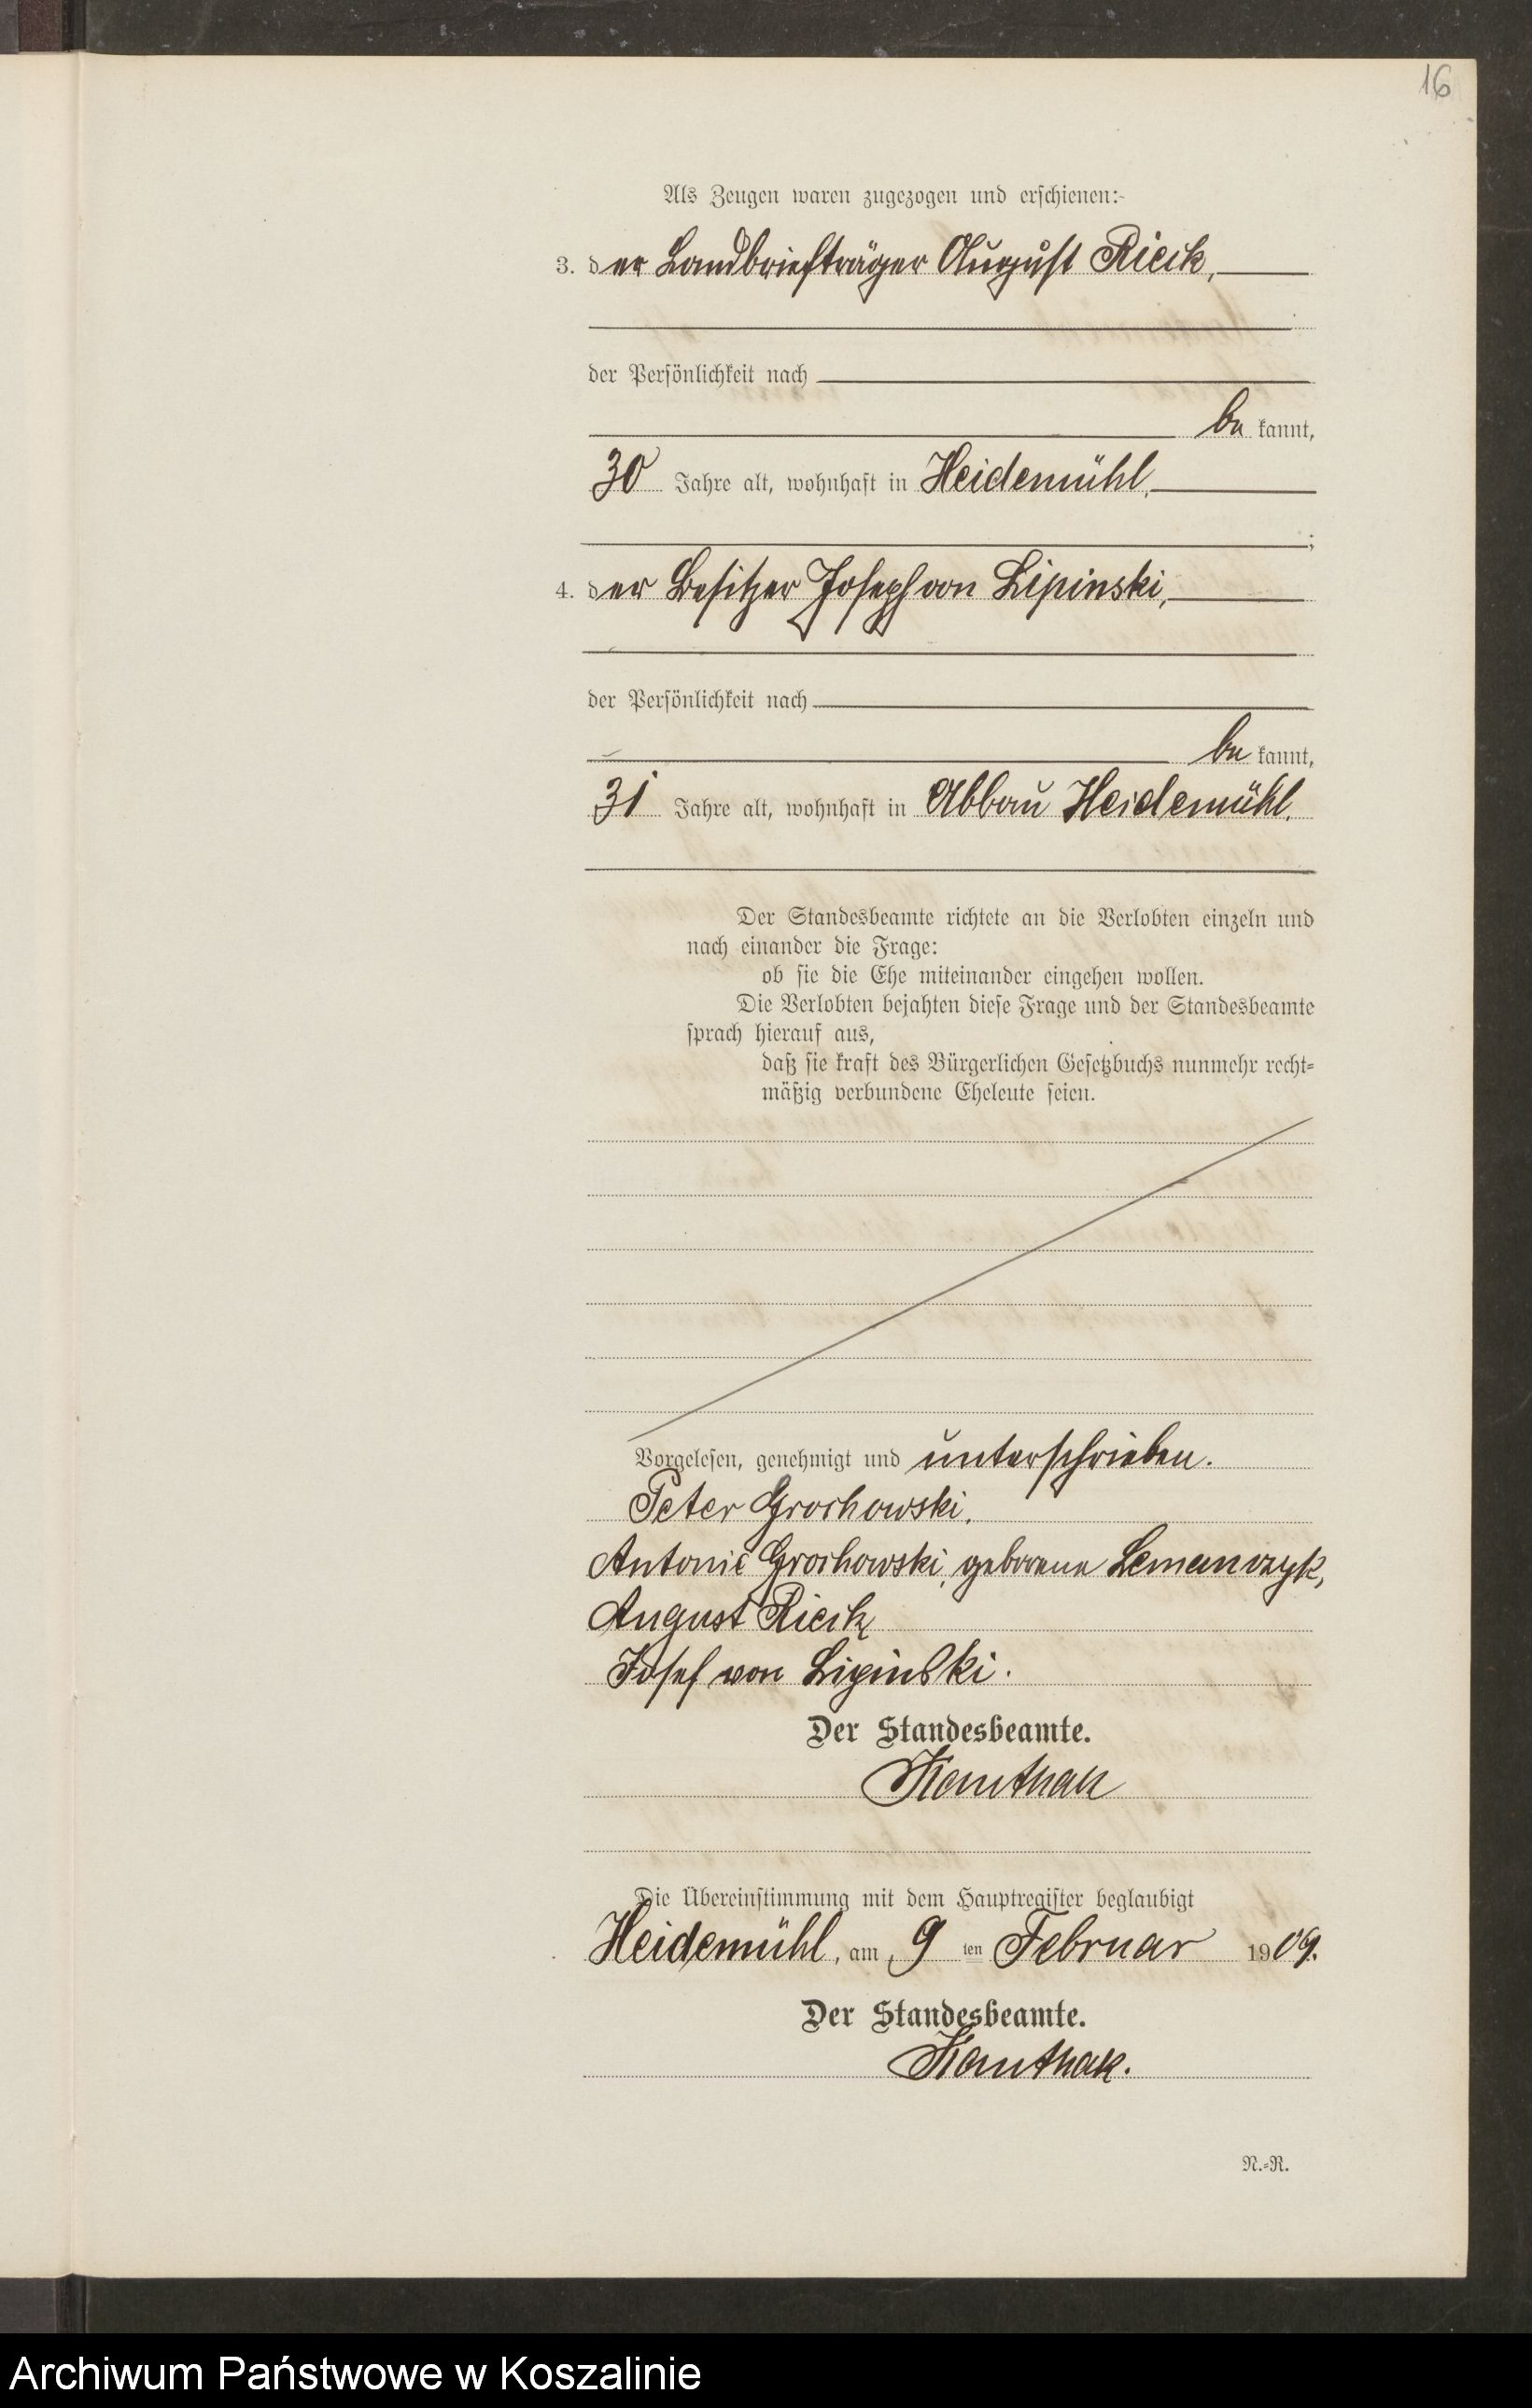 16
Als Zeugen waren zugezogen und erschienen:
3. der Landbriefträger August Rieck,
der Persönlichkeit nach
be kannt,
30 Jahre alt, wohnhaft in Heidemühl,
;
4. der Besitzer Joseph von Lipinski,
der Persönlichkeit nach
be kannt,
31 Jahre alt, wohnhaft in Abbau Heidemühl.
Der Standesbeamte richtete an die Verlobten einzeln und
nach einander die Frage:
ob sie die Ehe miteinander eingehen wollen.
Die Verlobten bejahten diese Frage und der Standesbeamte
sprach hierauf aus,
daß sie kraft des Bürgerlichen Gesetzbuchs nunmehr recht-
mäßig verbundene Eheleute seien.
Vorgelesen, genehmigt und unterschrieben.
Peter Grochowski.
Antonie Grochowski, geborene Lemanczyk,
August Rieck
Josef von Lipinski.
Der Standesbeamte.
Die Übereinstimmung mit dem Hauptregister beglaubigt
Heidemühl, am 9 ten Februar 1909.
Der Standesbeamte.
N.-R.
Archiwum Państwowe w Koszalinie